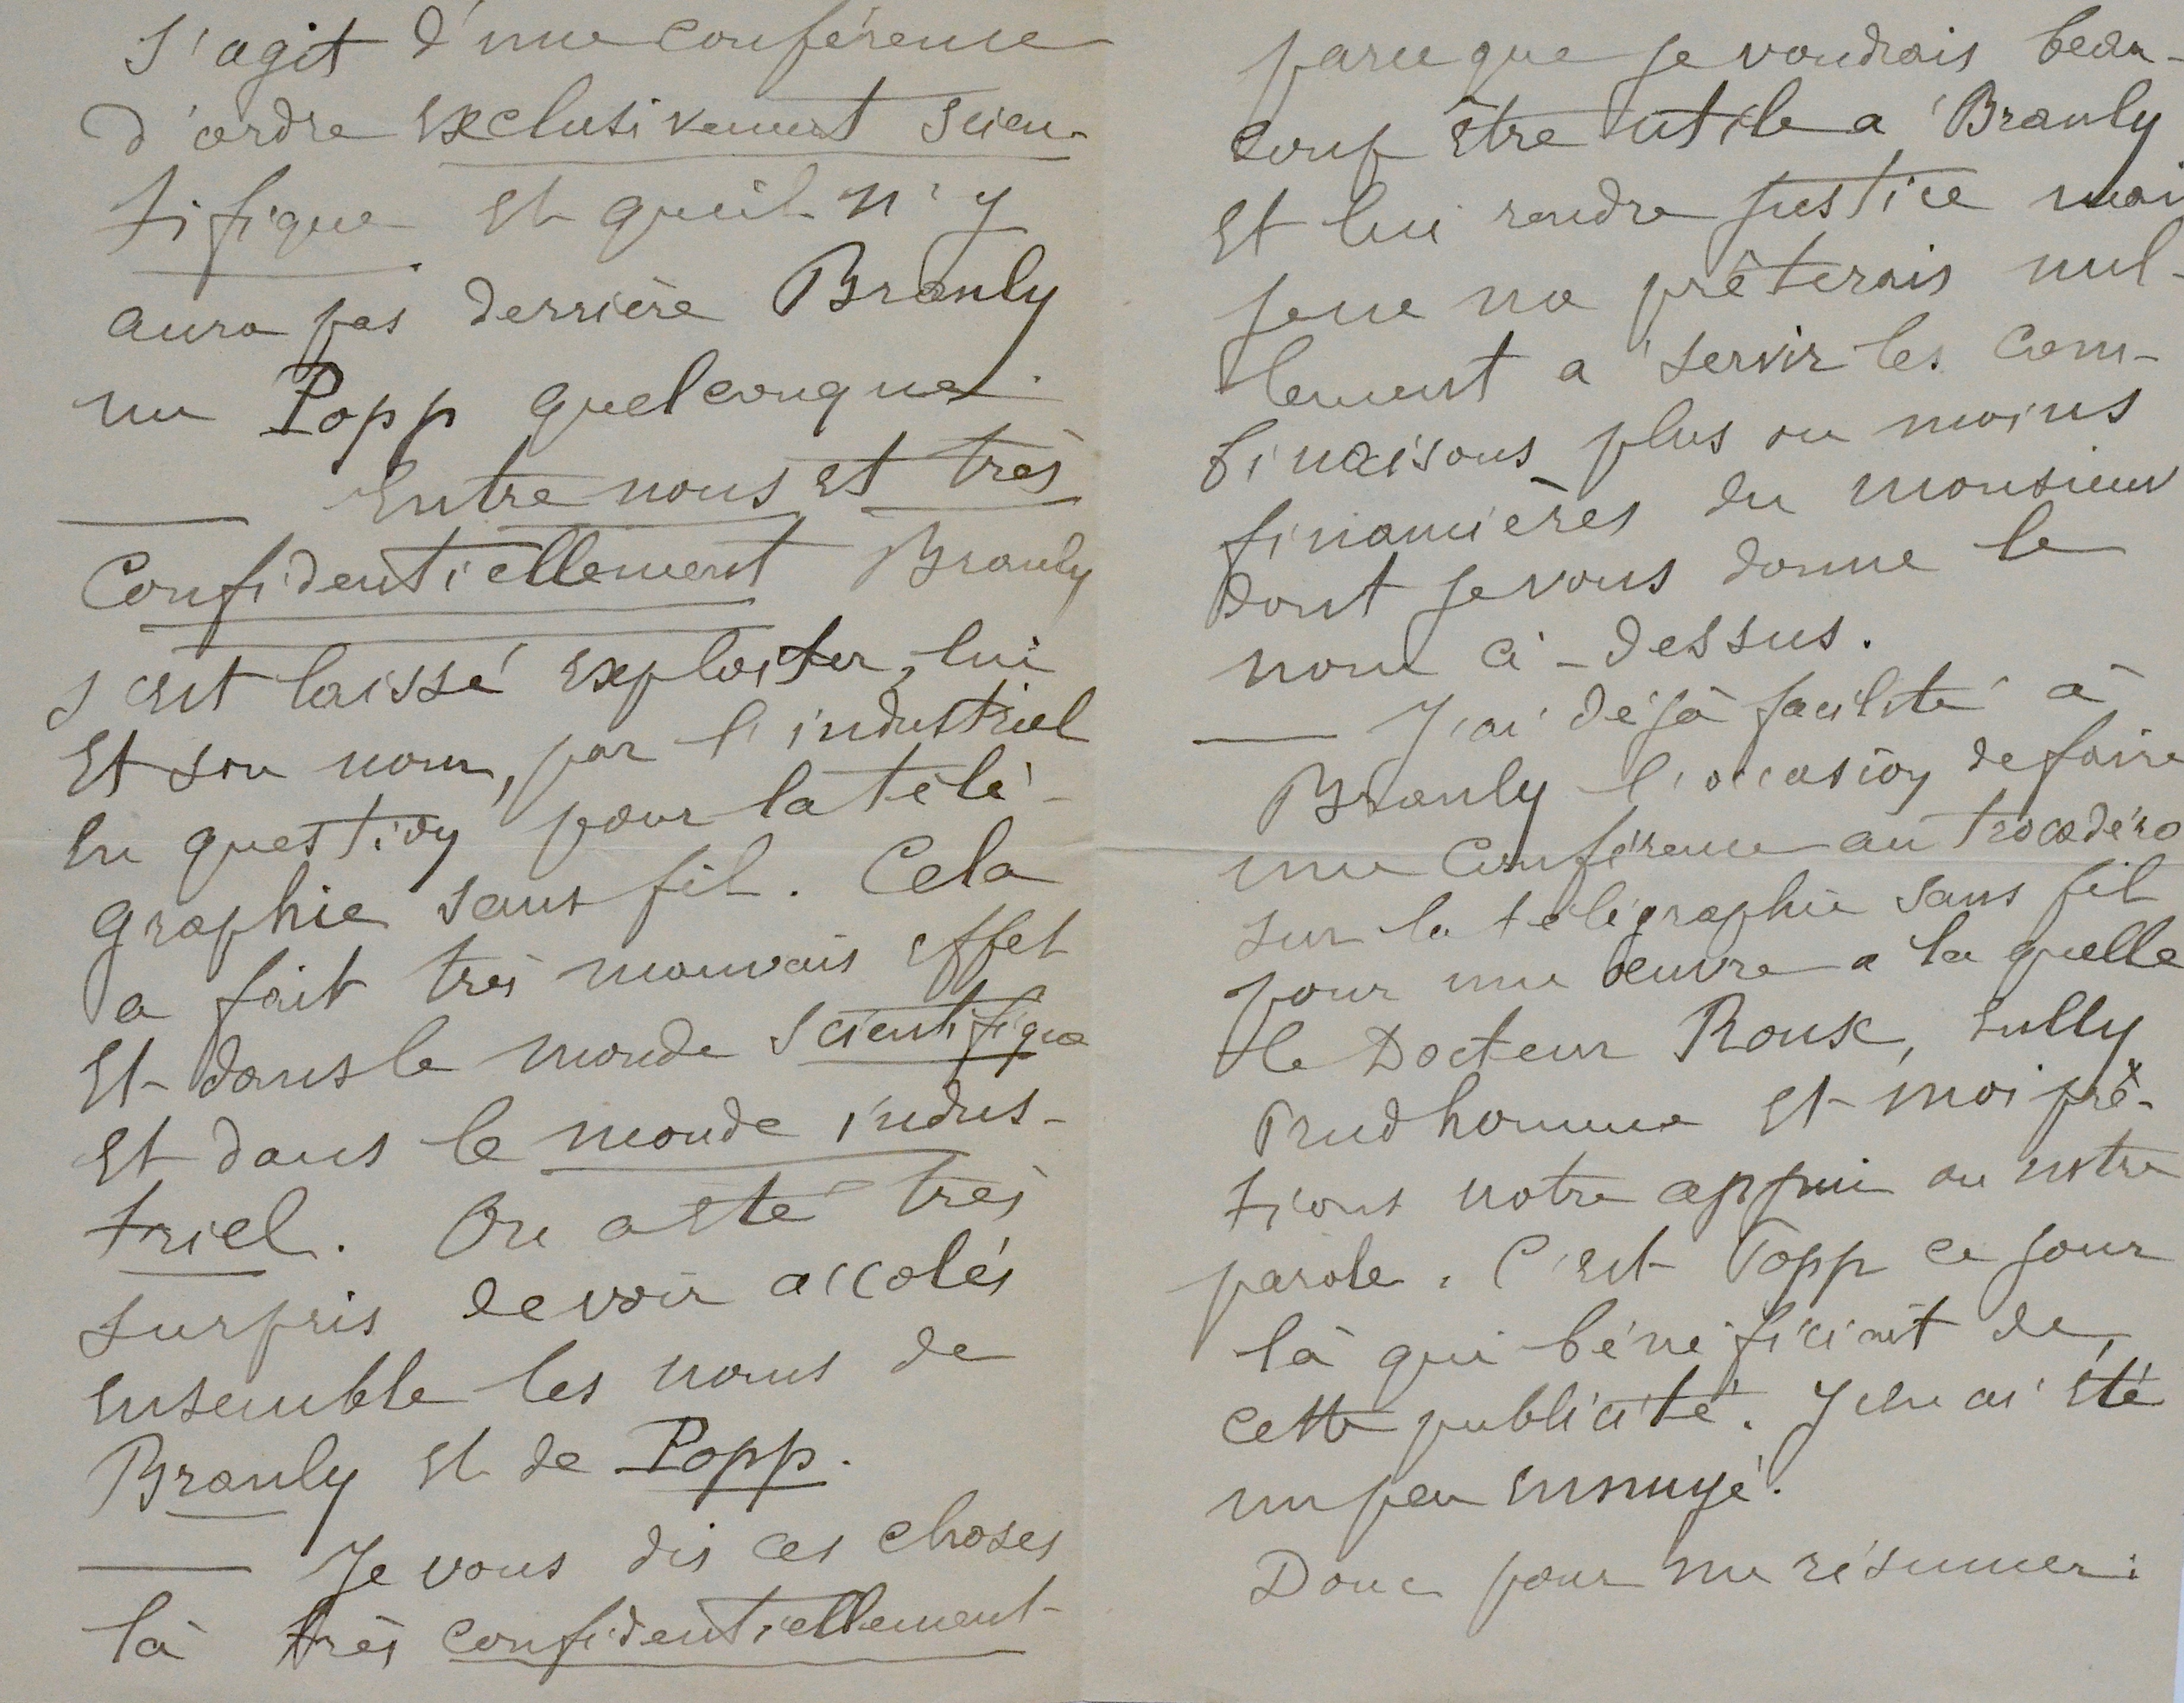 s'agit d'une conférence
d'ordre exclusivement scien-
tifique et qu'il n'y
aura pas derrière Branly
un Popp quelconque.
— Entre nous et très
Confidentiellement Branly
s'est laissé exploiter, lui
et son nom, par l'industriel
en question, pour la télé-
graphie sans fil. Cela
a fait très mauvais effet
et dans le monde scientifique
et dans le monde indus-
triel. On a été très
surpris de voir accolés
ensemble les noms de
Branly et de Popp.
— Je vous dis ces choses
là très confidentiellement
parce que je voudrais beau-
coup être utile à Branly
et lui rendre justice mais
je ne me prêterais nul-
lement à servir les com-
binaisons plus ou moins
financières du monsieur
dont je vous donne le
nom ci-dessus.
— J'ai déjà facilité à
Branly l'occasion de faire
une Conférence au Trocadéro
sur la télégraphie sans fil
pour une œuvre à la quelle
le Docteur Roux, Sully
Prudhomme et moi prê-
tions notre appui ou notre
parole. C'est Popp ce jour
là qui bénéficiait de
cette publicité. J'en ai été
un peu ennuyé.
Donc pour me résumer :